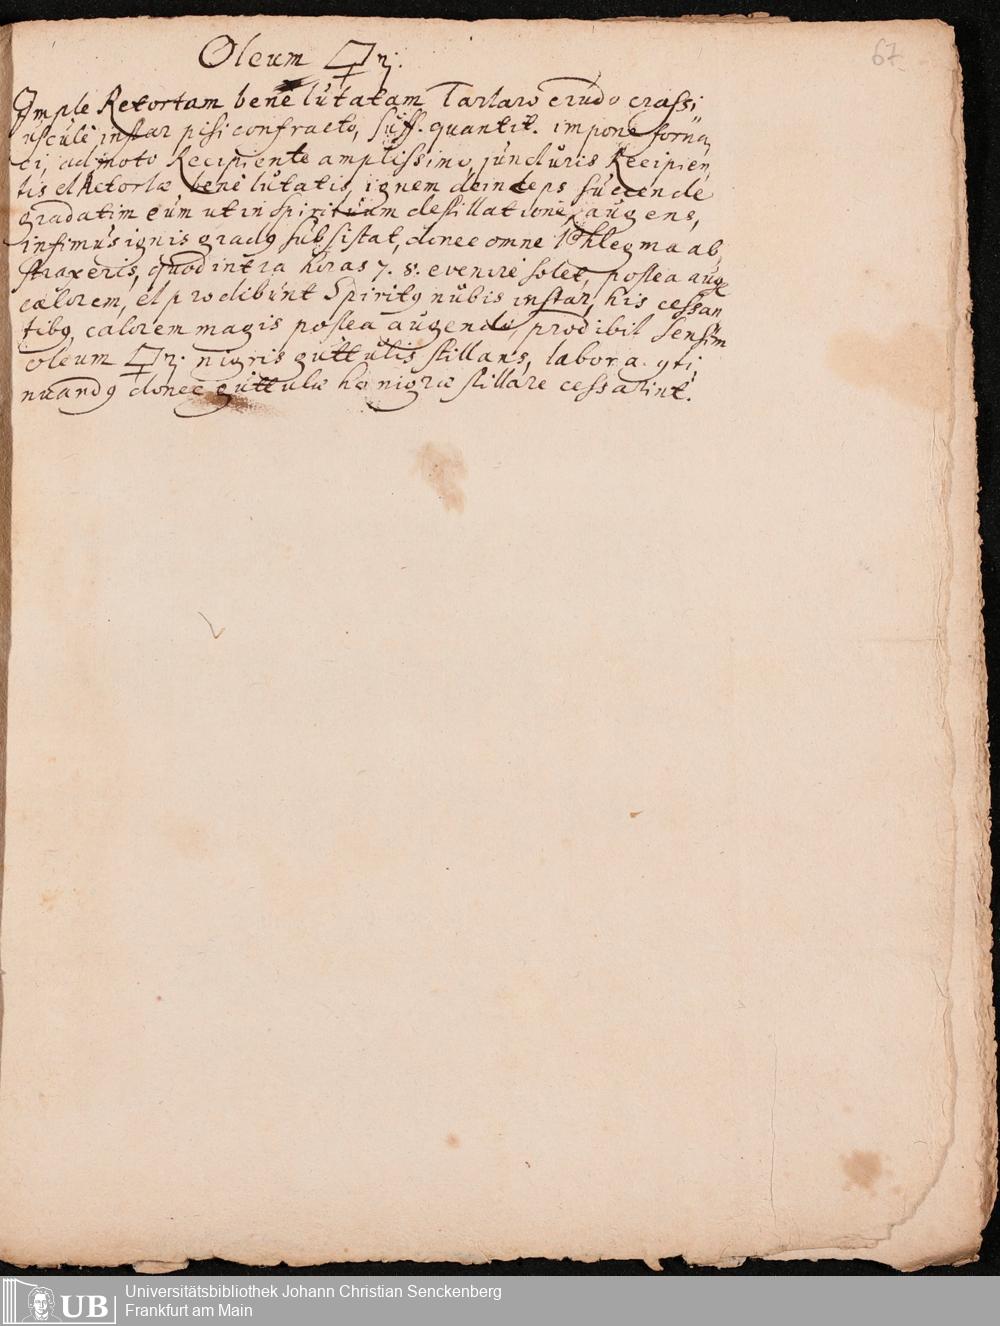 Oleum 🜿ri.
67
Imple Retortam bene lutatam Tartaro crudo crassi
usculè instar pisi confracto, suff. quantit. impone forna,
ci, admoto Recipiente amplissimo, juncturis Recipien,
tis et Retortæ benè lutatis, ignem deinceps succende
gradatim eum ut in spirituum destillatione augens,
infimus ignis gradq subsistat, donec omne Phlegma ab,
straxeris, quod intra horas 7. 8. evenire solet, postea auge
calorem, et prodibunt Spiritq nubis instar, his cessan
tibq, calorem magis postea augendo, prodibit sensim
oleum 🜿ri. nigris guttulis stillans, labor a.
nuandq donec guttulæ hæ nigræ stillare cessarint.
UB Universitätsbibliothek Johann Christian Senckenberg
Frankfurt am Main